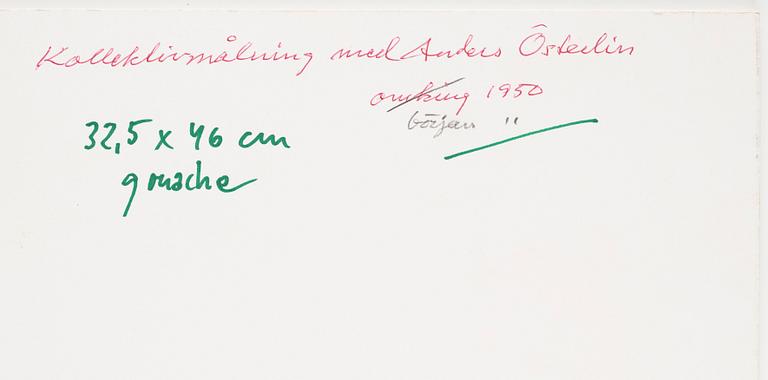 Kollektivmålning med Anders Österlin
omkring 1950
början "
32,5 x 46 cm
gouache